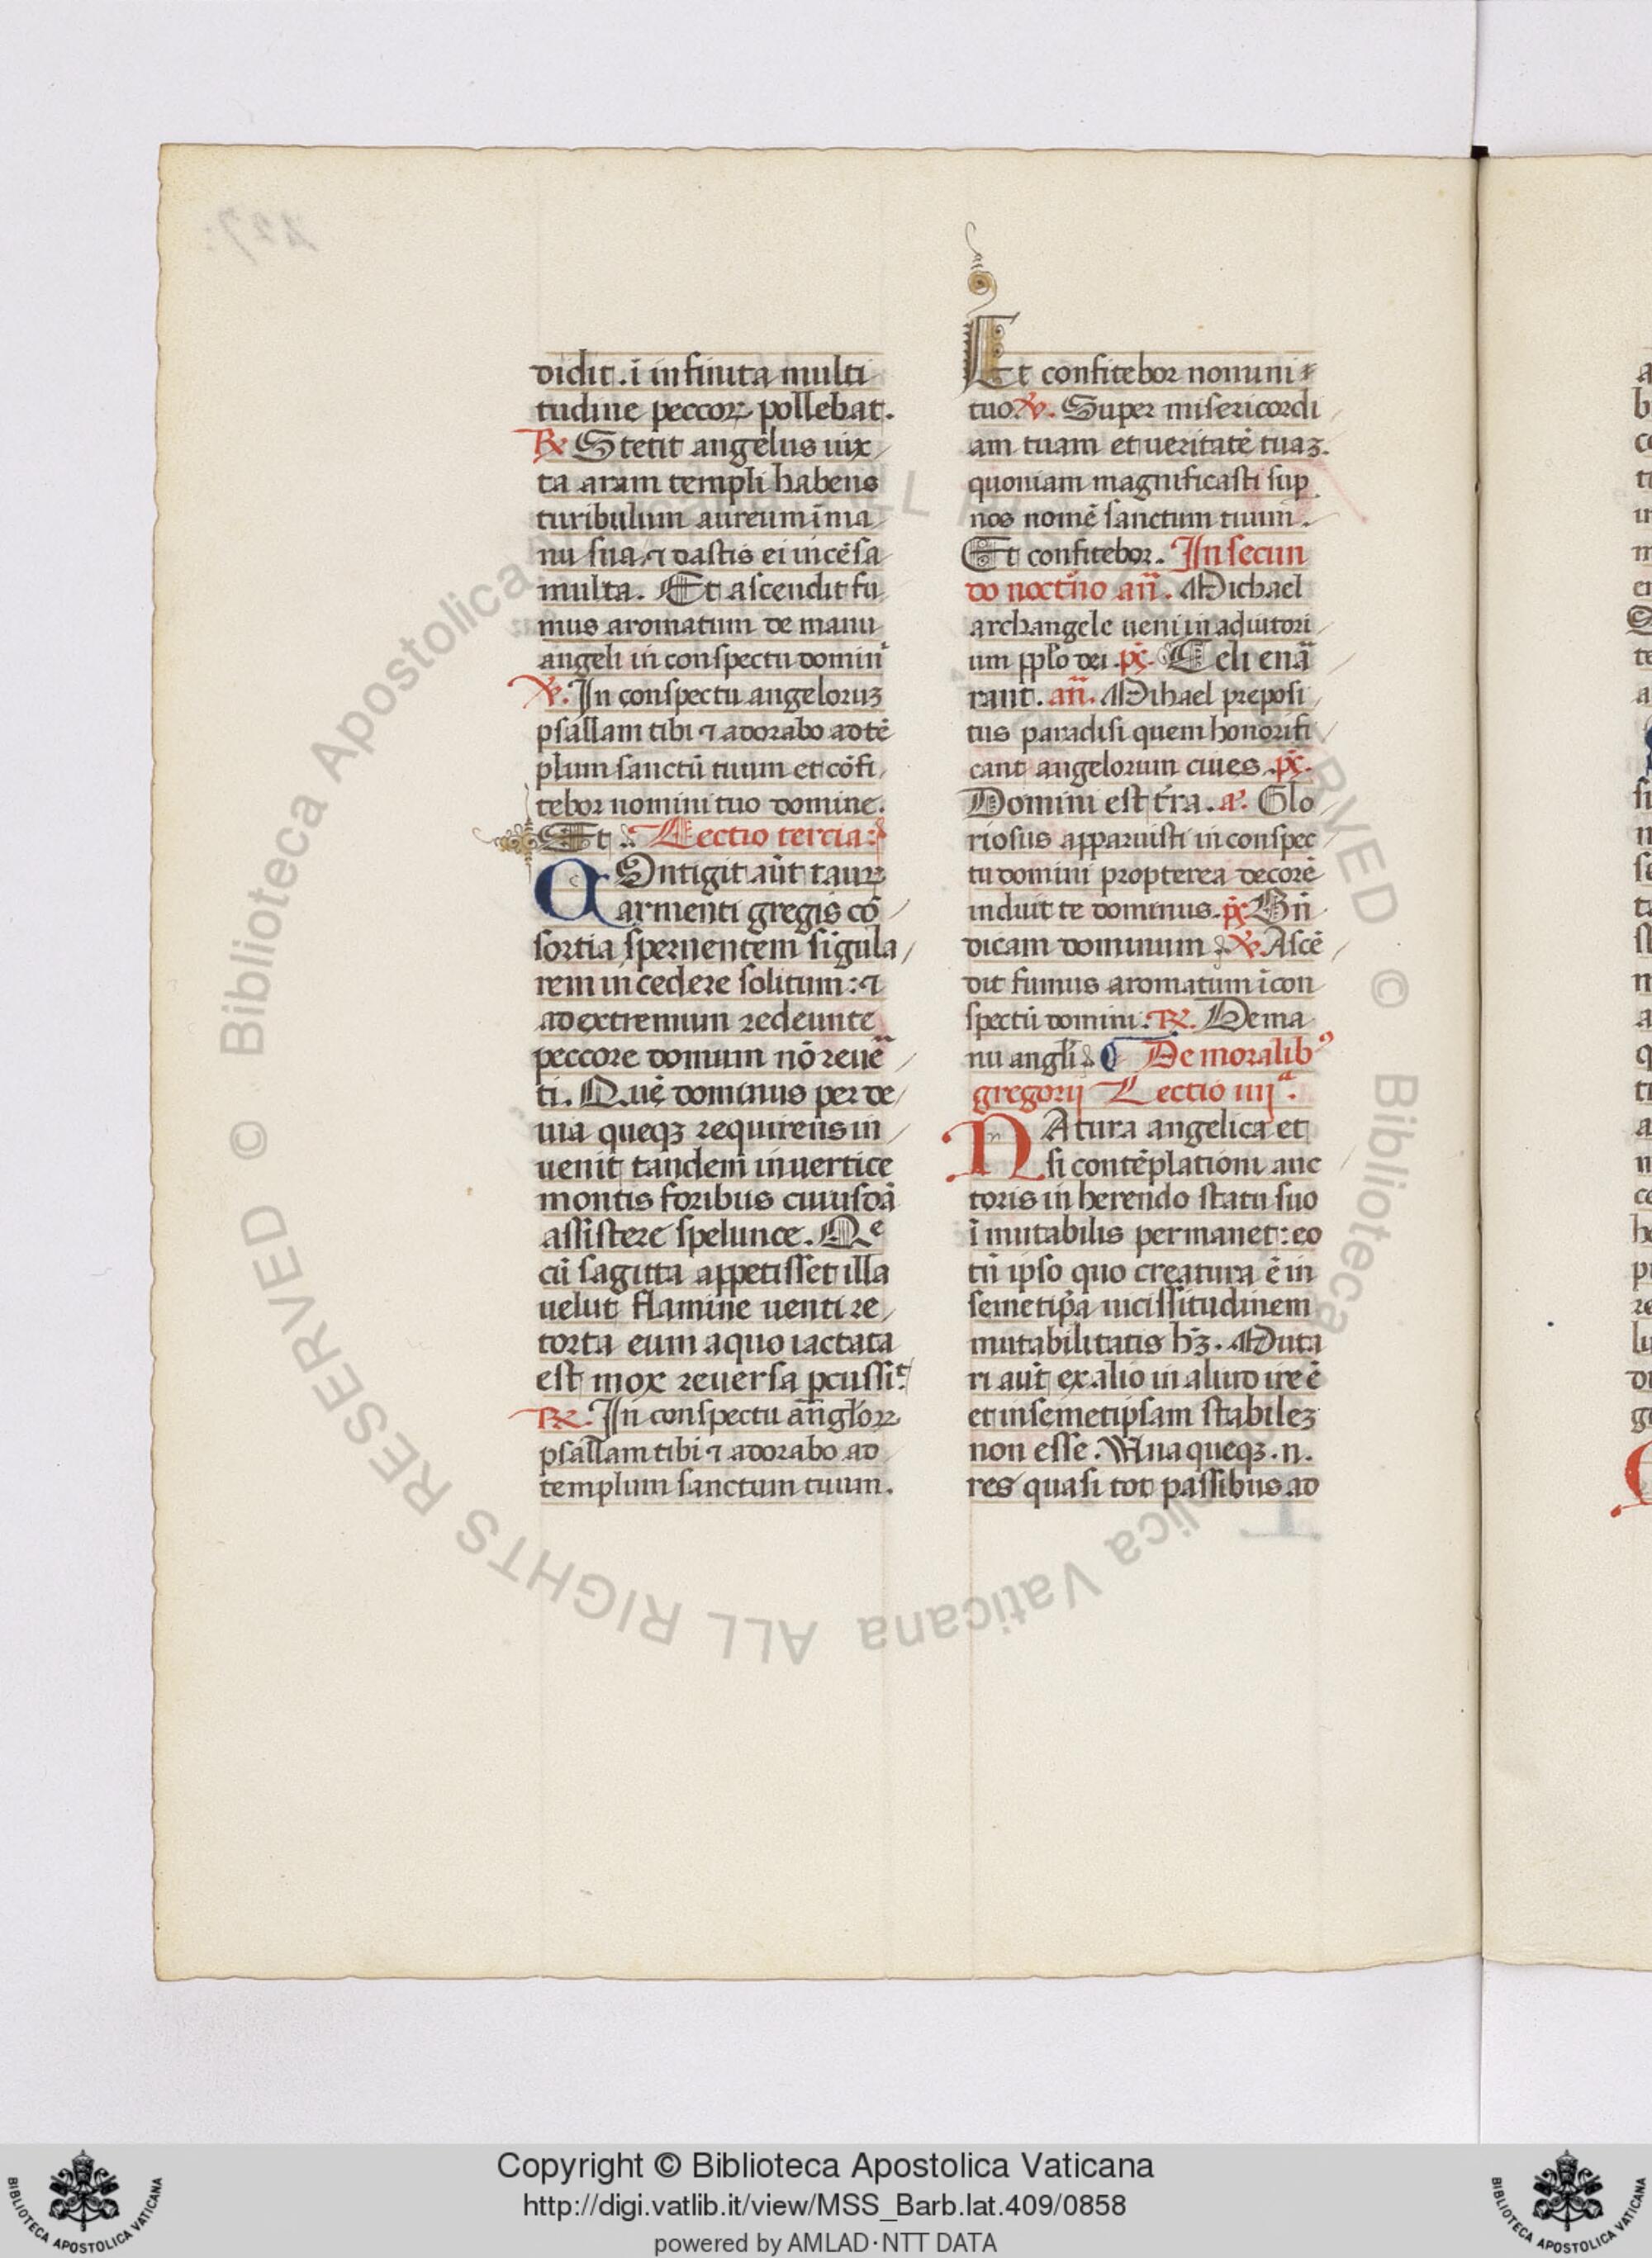 didit. ī infinita multi
tudine peccoꝝ pollebat.
℟ Stetit angelus iux
ta aram templi habens
turibulum aureum ī ma
nu sua ⁊ dastis ei incēsa
multa. Et ascendit fu
mus aromatum de manu
angeli in conspectu domin
℣. In conspectu angeloruꝫ
psallam tibi ⁊ adorabo ad tē
plum sanctū tuum et cōfi
tebor nomini tuo domine.
Et Lectio tercia:
COntigit aūt tauꝝ
armenti gregis cō
sortia spernentem sīgula
rem incedere solitum: ⁊
ad extremum redeunte
peccore domum nō reuē
ti. Quē dominus per de
uia queqꝫ requirens in
uenit tandem in uertice
montis foribus cuiusdā
assistere spelunce. Qe
cū sagitta appetisset illa
uelut flamine uenti re
torta eum a quo iactata
est mox reuersa ꝑcussit
℟. In conspectu āngloꝝ
psallam tibi ⁊ adorabo ad
templum sanctum tuum.
Et confitebor nomini
tuo ℣. Super misericordi
am tuam et ueritatē tuaꝫ.
quoniam magnificasti suꝑ
nos nomē sanctum tuum.
Et confitebor. In secun
do noctn̄o an̄. Michael
archangele ueni in adiutori
um pplo dei. ps̄. Celi enā
rant. an̄. Mihael preposi
tus paradisi quem honorifi
cant angelorum ciues. ps̄.
Domini est tr̄a. a. Glo
riosus apparuisti in conspec
tu domini propterea decorē
induit te dominus. ps̄ Bn̄
dicam dominum ℣. Ascē
dit fumus aromatum ī con
spectū domini. ℟. De ma
nu angli De moralibꝰ
gregorii Lectio iiiiª.
NAtura angelica et
si contēplationi auc
toris in herendo statu suo
īmutabilis permanet: eo
tn̄ ipso quo creatura ē in
semetip̄a uicissitudinem
mutabilitatis hꝫ. Muta
ri aūt ex alio in aliud ire ē
et in semetipsam stabileꝫ
non esse. Vnaqueqꝫ .n.
res quasi tot passibus ad
Copyright © Biblioteca Apostolica Vaticana
http://digi.vatlib.it/view/MSS_Barb.lat.409/0858
powered by AMLAD·NTT DATA